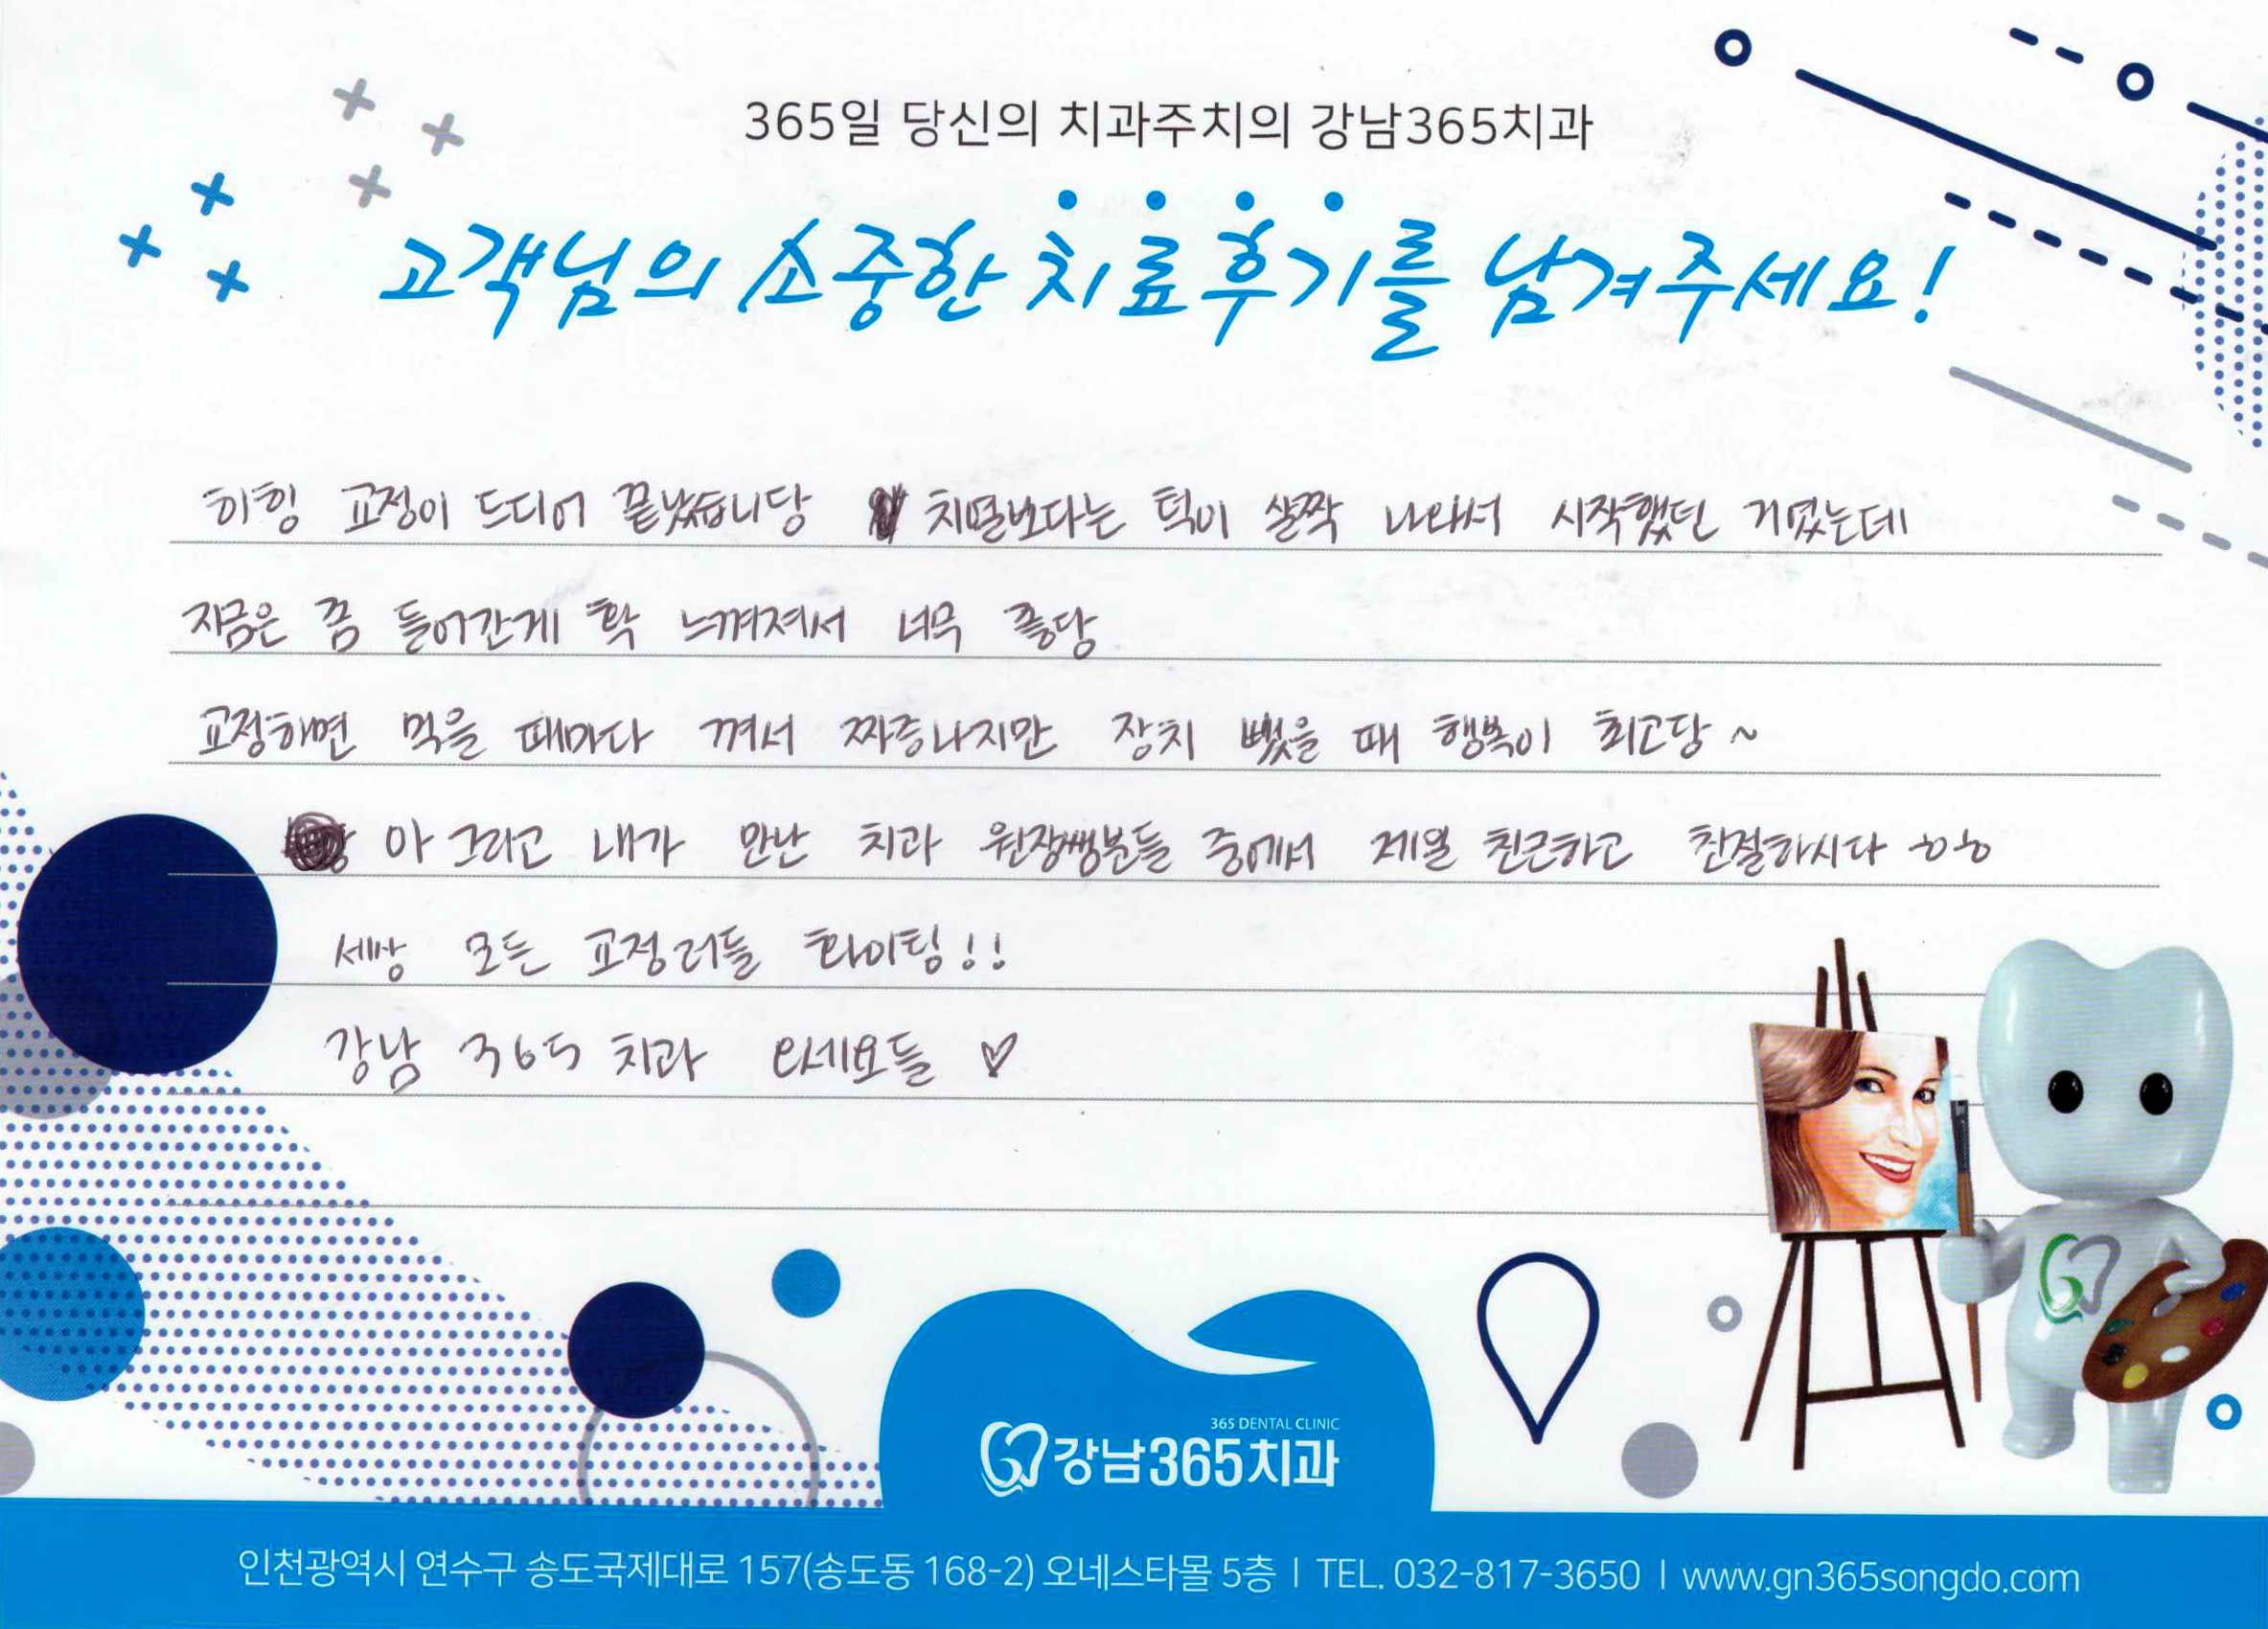 365일 당신의 치과주치의 강남365치과
고객님의 소중한 치료후기를 남겨주세요!
히힝 교정이 드디어 끝났습니당 치열보다는 턱이 살짝 나와서 시작했던 거였는데
지금은 쫌 들어간게 확 느껴져서 너무 죻당
교정하면 먹을 때마다 껴서 짜증나지만 장치 뺐을 때 행복이 최고당~
아 그리고 내가 만난 치과 원장쌤분들 중에서 제일 친근하고 친절하시다 ㅎㅎ
세상 모든 교정러들 화이팅!!
강남 365 치과 오세요들 ♡
365 DENTAL CLINIC
강남365치과
인천광역시 연수구 송도국제대로 157(송도동 168-2) 오네스타몰 5층 I TEL. 032-817-3650 I www.gn365songdo.com